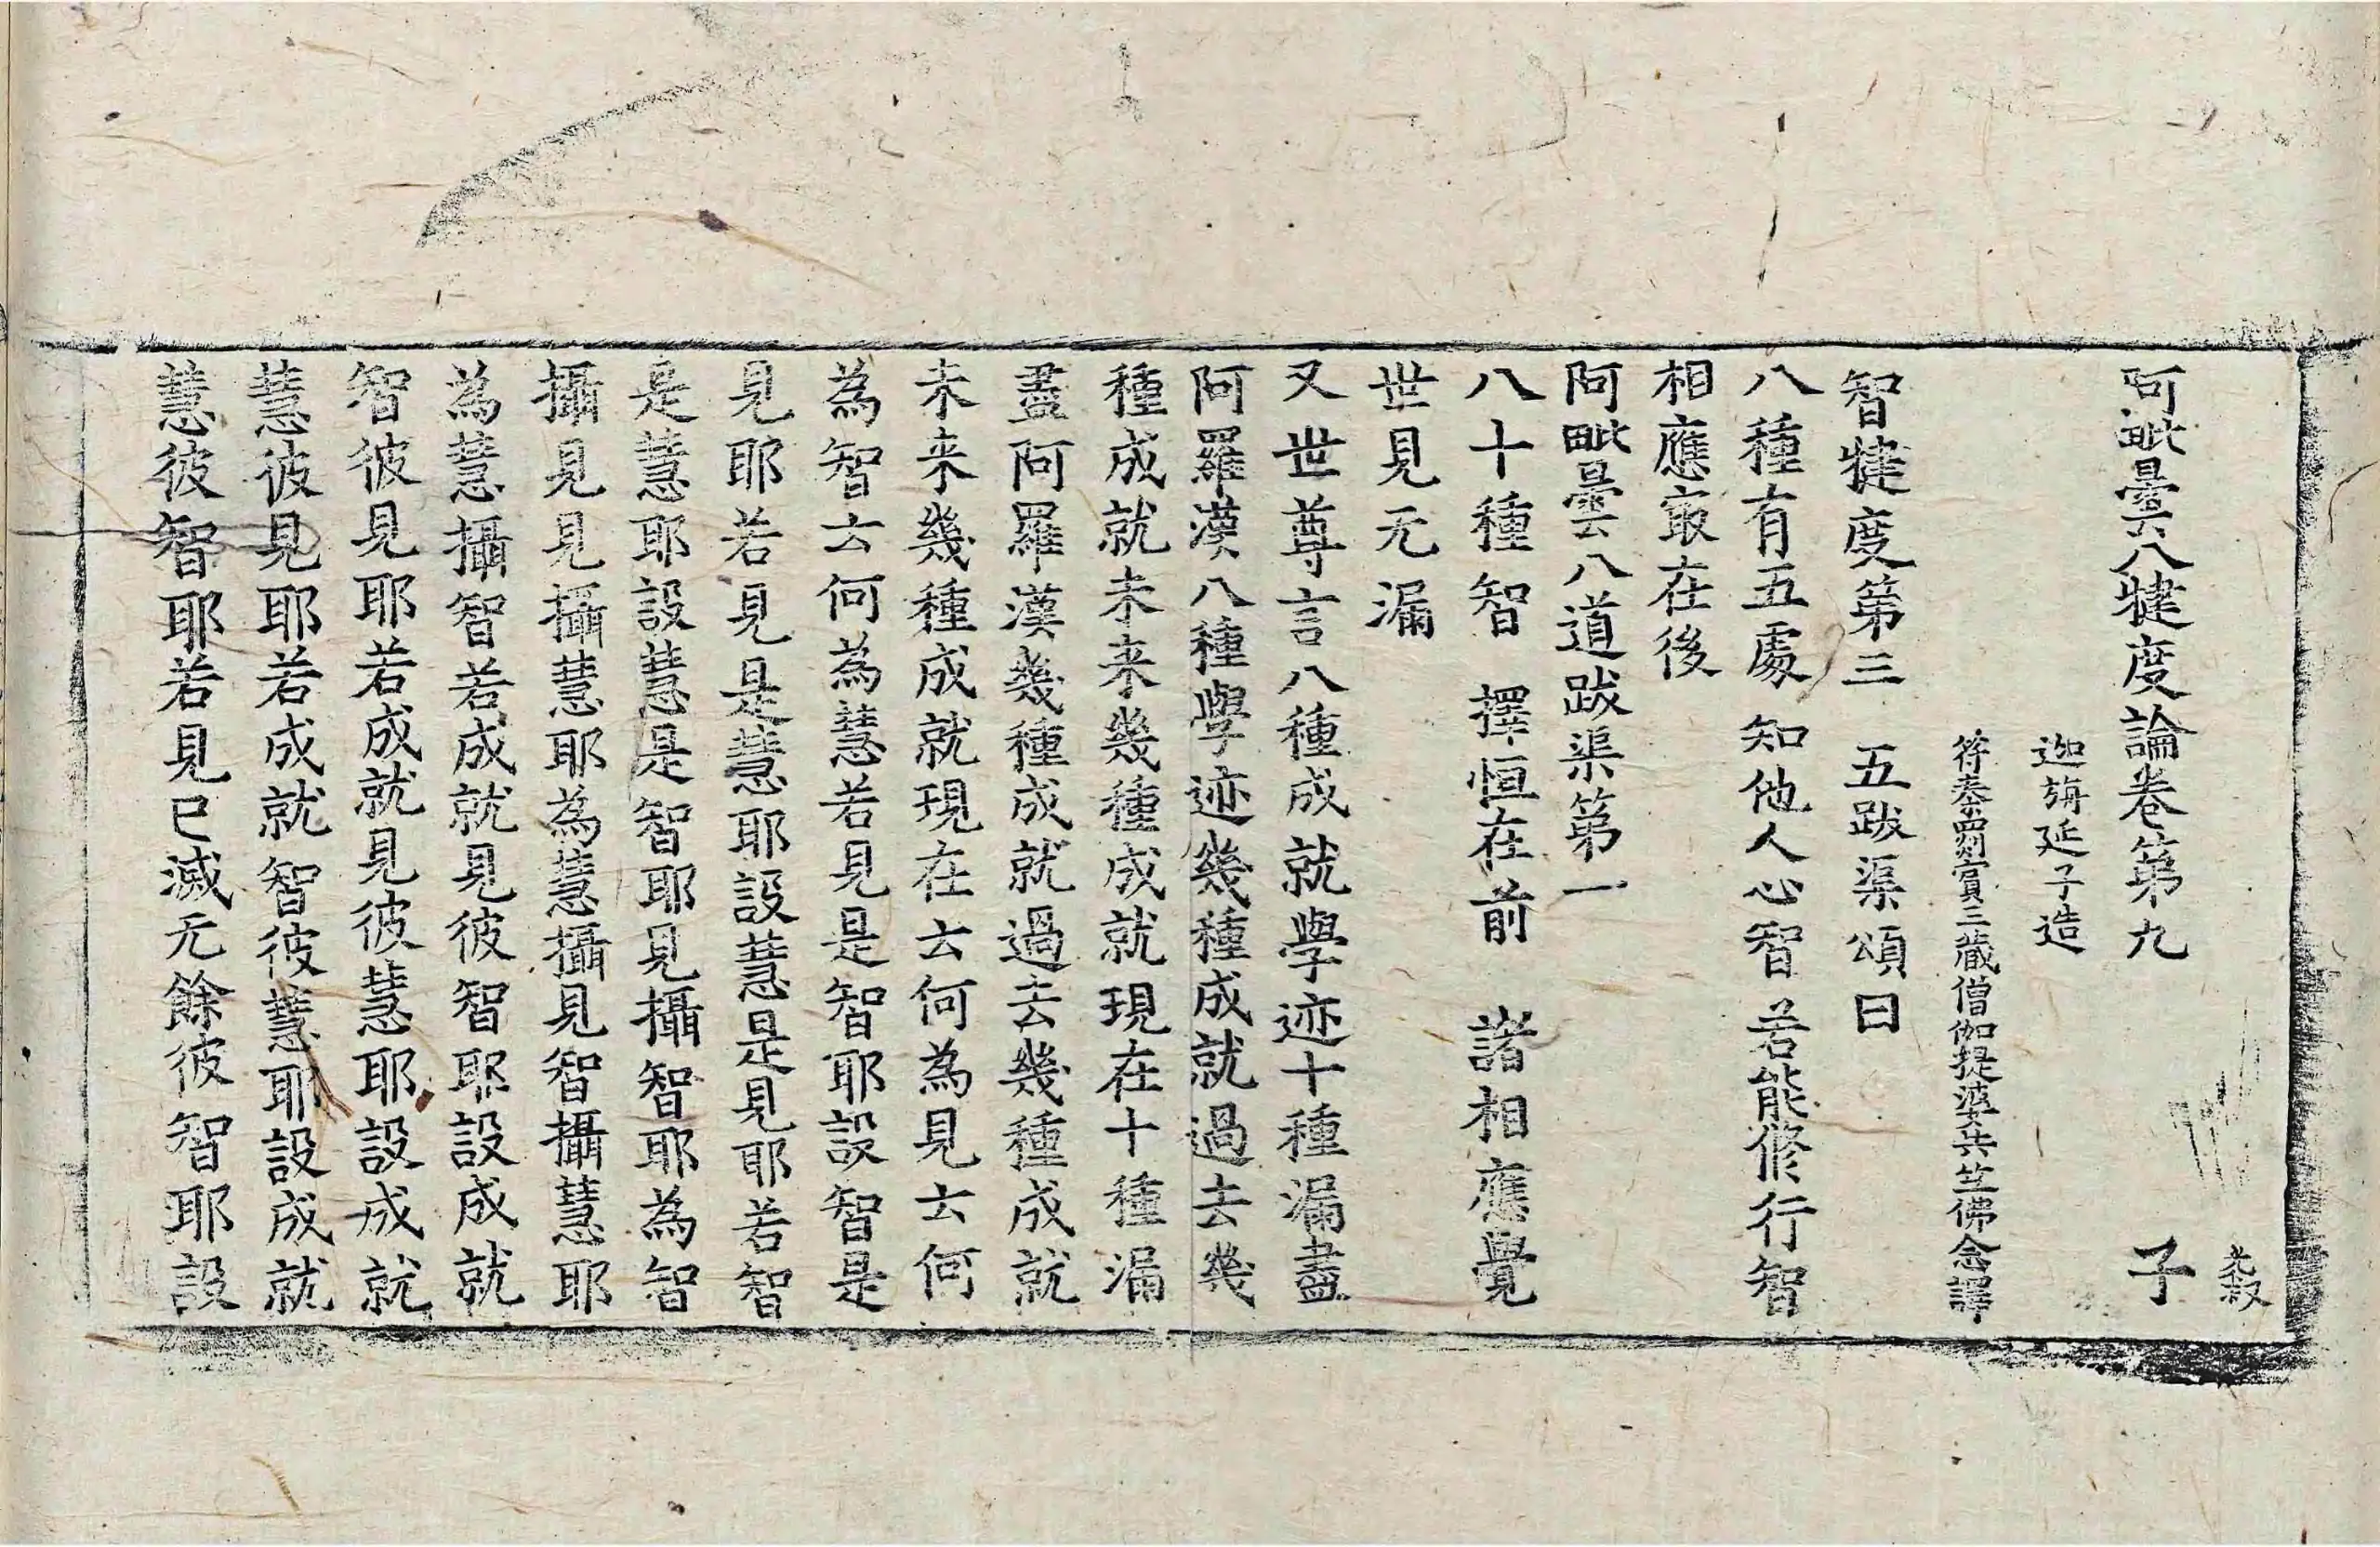 阿毗曇八犍度論卷第九
子
迦旃延子造
符秦罽賓三藏僧伽提婆共竺佛念譯
智犍度第三 五跋渠頌曰
八種有五處 知他人心智 若能修行智
相應㝡在後
阿毗曇八道跋渠第一
八十種智 擇恒在前 諸相應覺
世見无漏
又世尊言八種成就學迹十種漏盡
阿羅漢八種學迹幾種成就過去幾
種成就未来幾種成就現在十種漏
盡阿羅漢幾種成就過去幾種成就
未来幾種成就現在云何為見云何
為智云何為慧若見是智耶設智是
見耶若見是慧耶設慧是見耶若智
是慧耶設慧是智耶見攝智耶為智
攝見見攝慧耶為慧攝見智攝慧耶
為慧攝智若成就見彼智耶設成就
智彼見耶若成就見彼慧耶設成就
慧彼見耶若成就智彼慧耶設成就
慧彼智耶若見已滅无餘彼智耶設